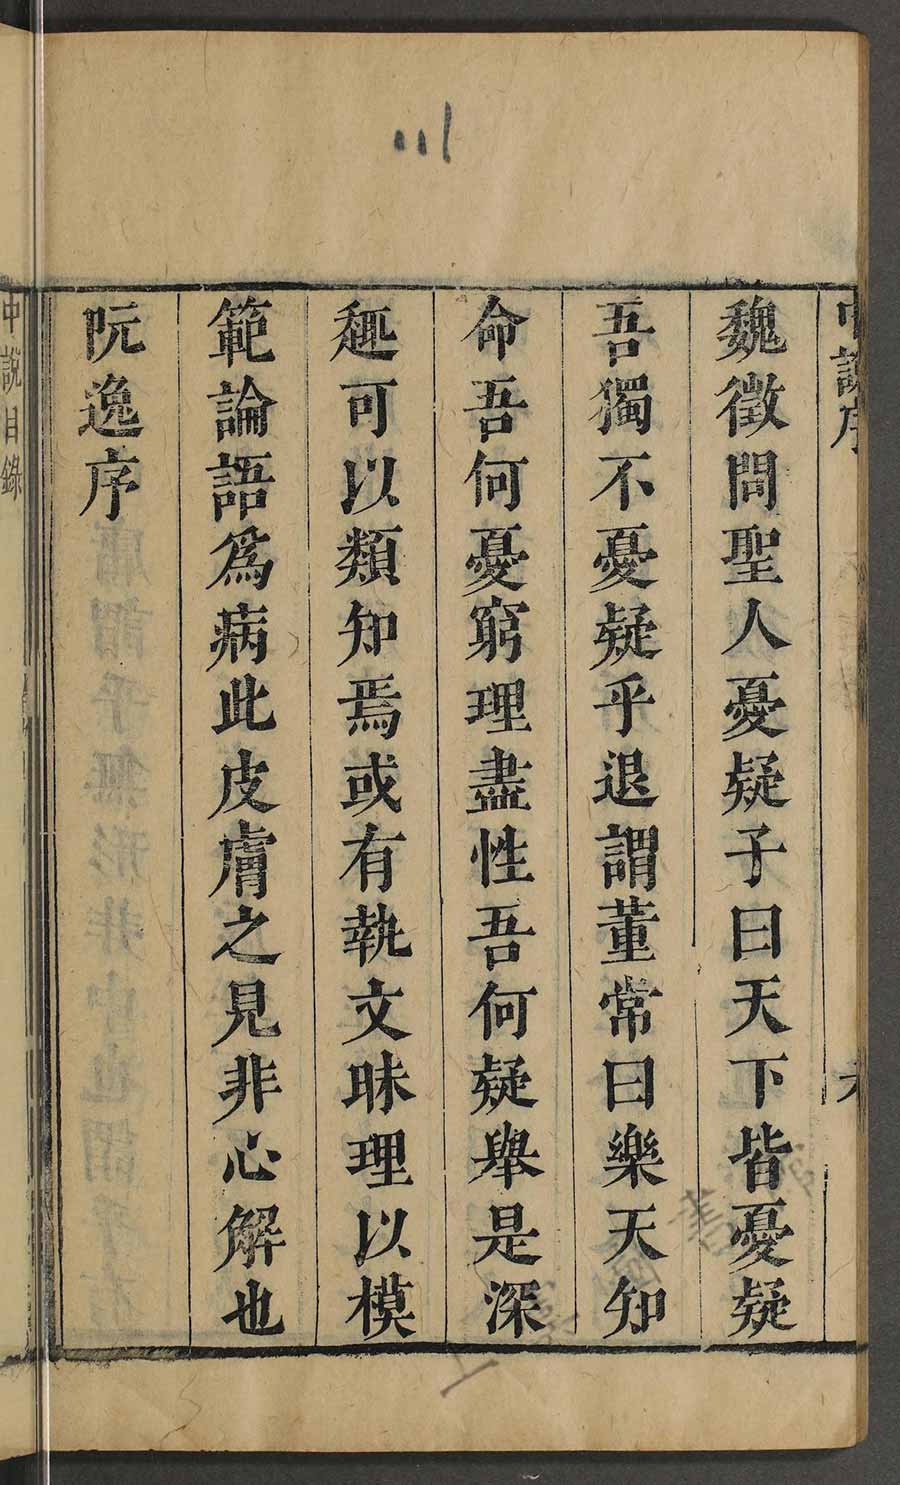 魏徵問聖人憂疑子曰天下皆憂疑
吾獨不憂疑乎退謂董常曰樂天知
命吾何憂窮理盡性吾何疑舉是深
趣可以類知焉或有執文昧理以模
範論語爲病此皮膚之見非心解也
阮逸序
中說目錄